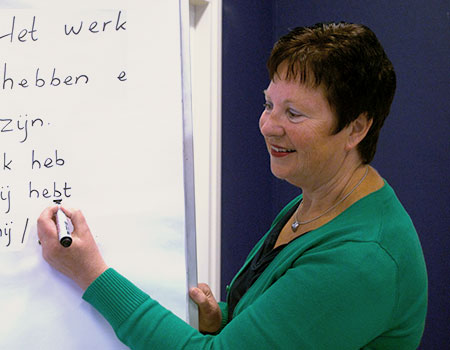 Het werk
hebben e
zijn.
k heb
ij hebt
ij /